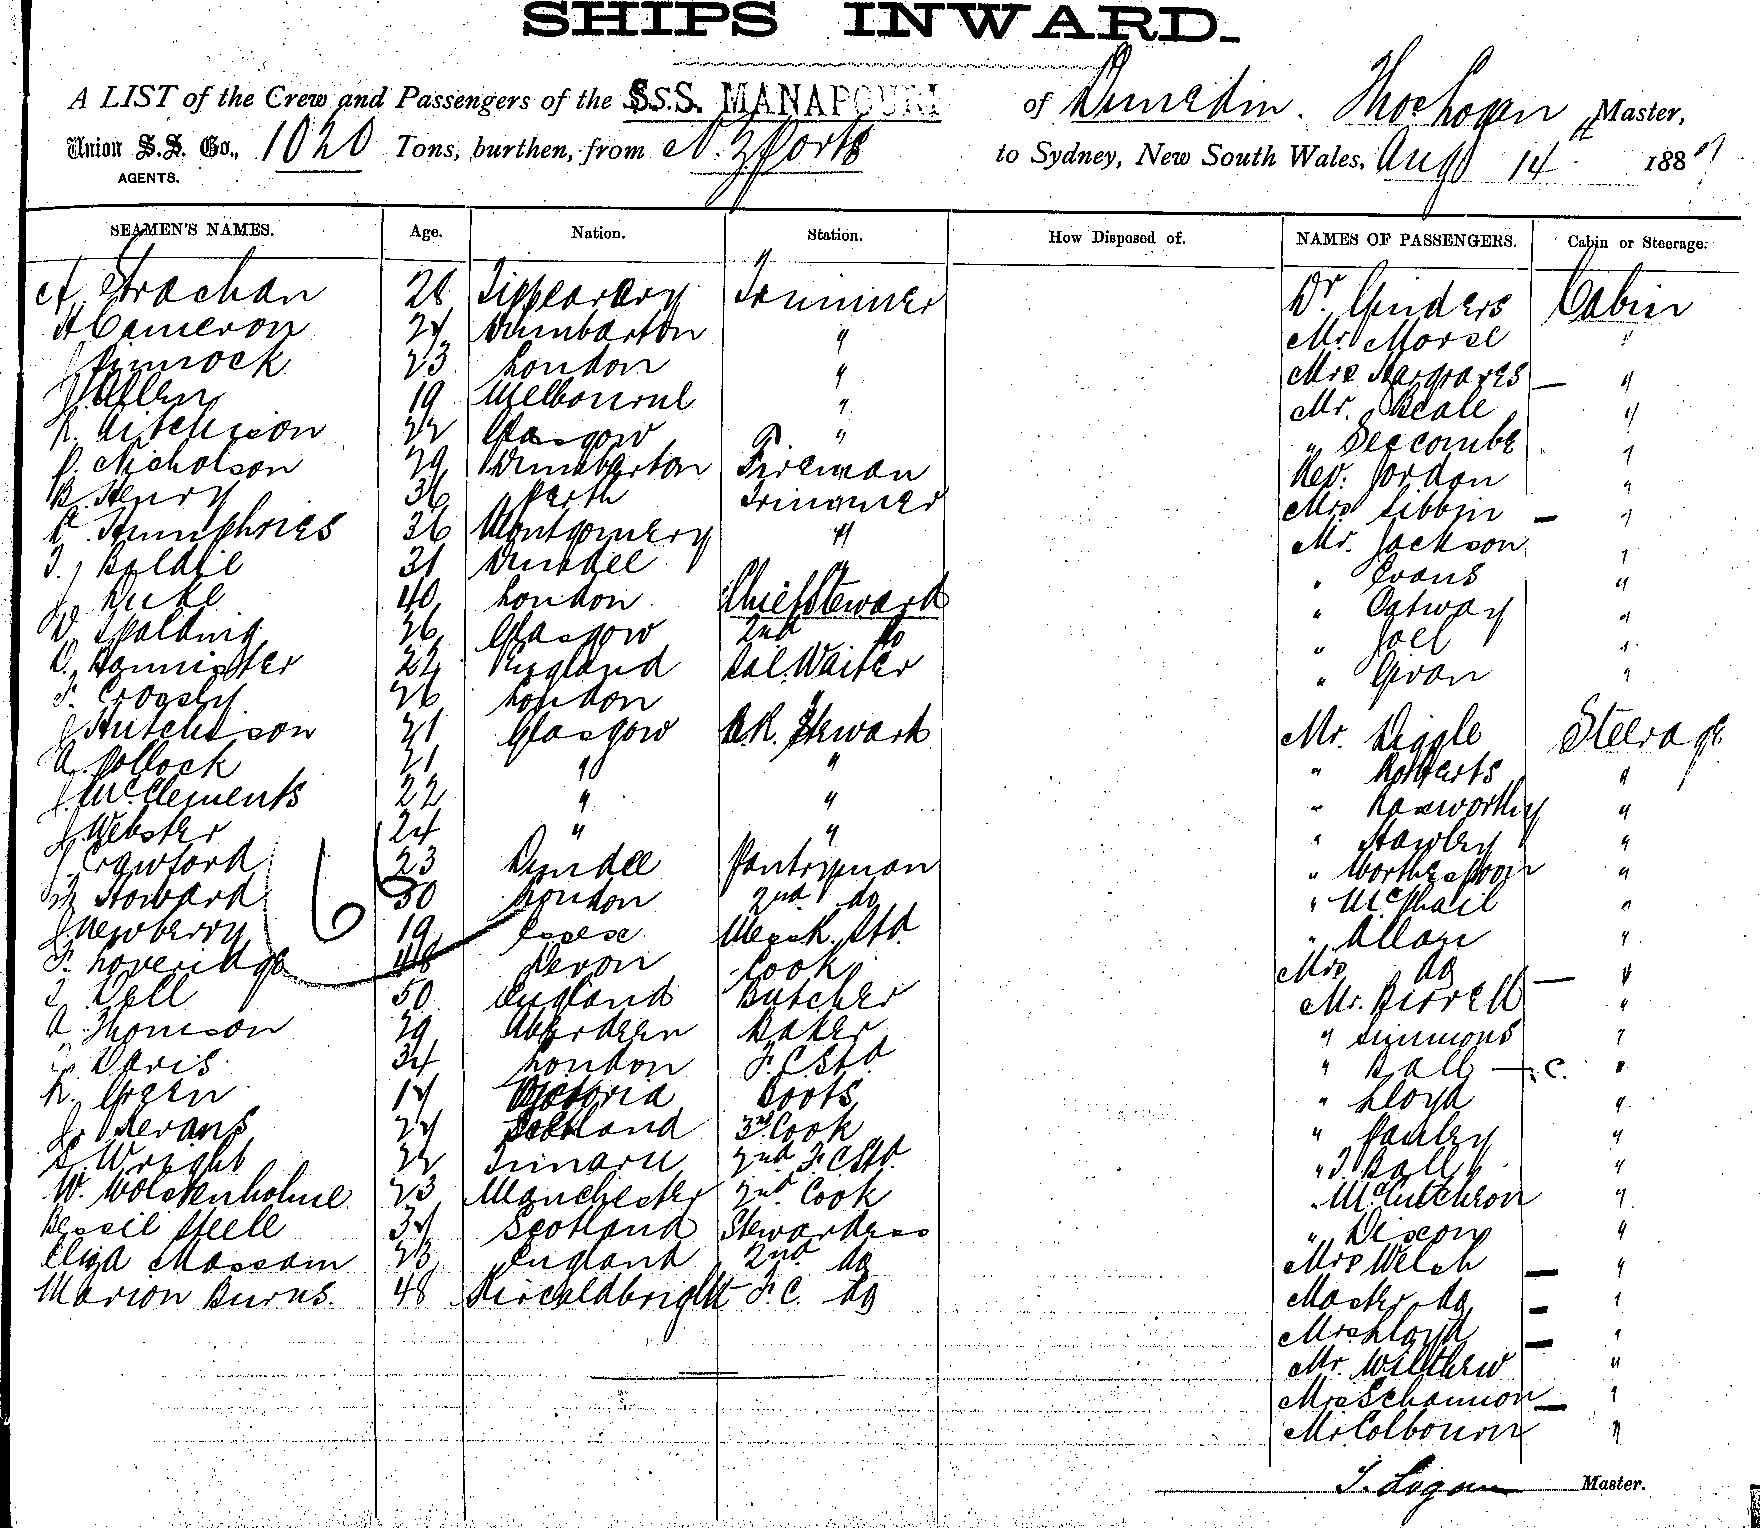 SHIPS INWARD.
A LIST of the Crew and Passengers of the S.S. MANAPOURI of Dunedin. Thos Logan Master,
Union S.S. Co., 1020 Tons, burthen, from N. Z Ports to Sydney, New South Wales, Aug 14th 188
AGENTS.
SEAMEN'S NAMES. Age. Nation. Station. How Disposed of. NAMES OF PASSENGERS. Cabin or Steerage.
A Strachan 28 Tipperary Trimmer Dr Ginders Cabin
A Cameron 24 Dumbarton " Mr. Morse "
J Pinnock 23 London " Mrs Hargraves — "
J. Allen 19 Melbourne " Mr. Beale "
R. Aitchison 22 Glasgow " " Seccombe "
P. Nicholson 29 Dumbarton Fireman Rev. Jordon "
B. Henry 36 Perth Trimmer Mrs Sibbin — "
Humphries 36 Montgomery " Mr. Jackson "
T. Baldie 31 Dundee " " Evans "
J. Duke 40 London Chief Steward " Ostway "
D. Spalding 26 Glasgow 2nd do " Joel "
D. Bannister 22 England Sal. Waiter " Givan "
F. Crossly 26 London "
J Hutchison 21 Glasgow B.R. Steward Mr. Diggle Steerage
A. Pollock 21 " " " Roberts "
J. McClements 22 " " " "
J Webster 24 " " " Hawley "
J Crawford 23 Dundee Pantryman " "
Howard 30 London 2nd do " McPhail "
J Newberry 19 Essex Mess R. Std. " Allan "
F. Loveridge 48 Devon Cook Mrs do — "
T. Dell 50 England Butcher Mr. Birrell "
A. Thomson 29 Aberdeen Baker " Simmons "
Davis 34 London F.C Std " Ball — F.C. "
R. Green 17 Victoria Boots " Lloyd "
J. Bevans 24 Scotland 3rd Cook " Pauley "
L. Wright 22 Timaru 2nd F.C Std. " T. Ball "
W. Wolstenholme 23 Manchester 2nd Cook " McCutcheon "
Bessie Steele 34 Scotland Stewardess " Dixon "
Eliza Massam 23 England 2nd do Mrs Welch — "
Marion Burns. 48 Kircaldbright F.C. do Master do — "
Mrs Lloyd — "
Mr. Wilthew "
Mrs Schannon — "
Mr. Colbourn "
T. Logan Master.